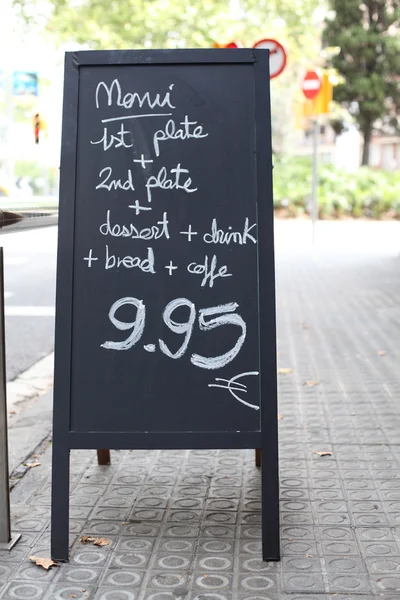 Menú
1st plate
+
2nd plate
+
dessert + drink
+ bread + coffe
9.95
€